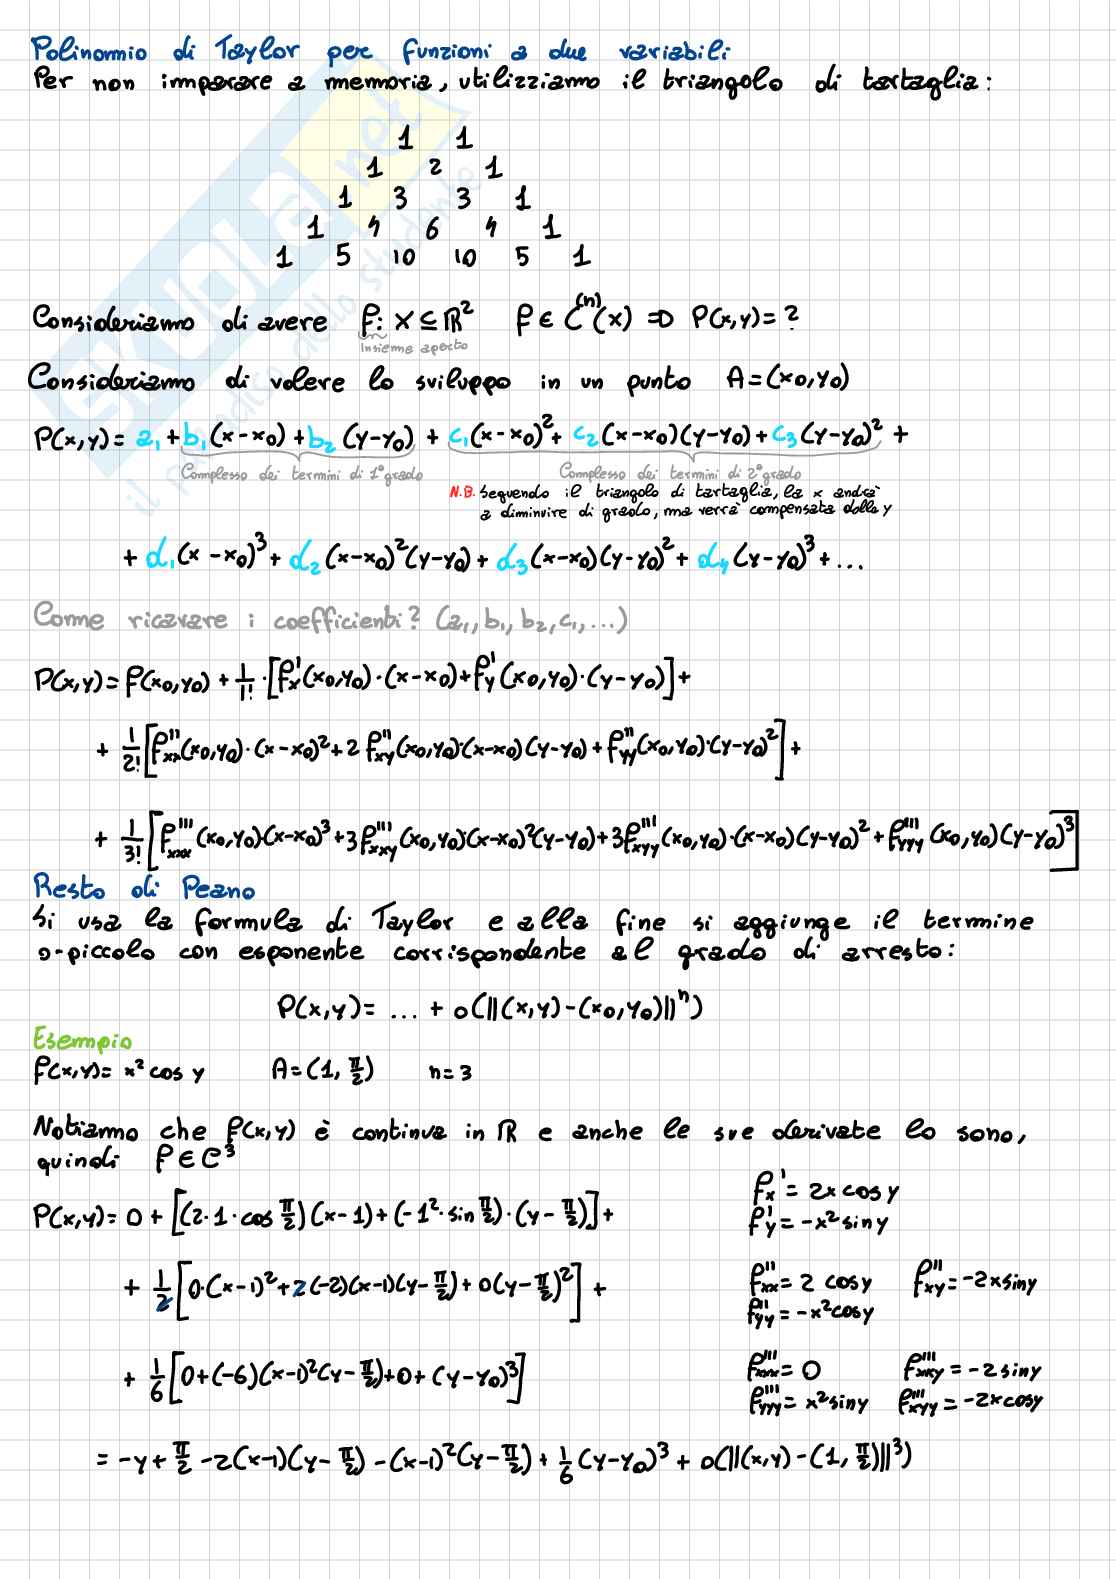 Polinomio di Taylor per funzioni a due variabili
Per non imparare a memoria, utilizziamo il triangolo di tartaglia:
1 1
1 2 1
1 3 3 1
1 4 6 4 1
1 5 10 10 5 1
Consideriamo di avere f: X ⊆ ℝ² f ∈ C⁽ⁿ⁾(x) ⇒ P(x,y) = ?
Insieme aperto
Consideriamo di volere lo sviluppo in un punto A=(x₀,y₀)
P(x,y) = a₁ + b₁(x-x₀) + b₂(y-y₀) + c₁(x-x₀)² + c₂(x-x₀)(y-y₀) + c₃(y-y₀)² +
Complesso dei termini di 1°grado Complesso dei termini di 2°grado
N.B. Seguendo il triangolo di tartaglia, la x andrà
a diminuire di grado, ma verrà compensata dalla y
+ d₁(x-x₀)³ + d₂(x-x₀)²(y-y₀) + d₃(x-x₀)(y-y₀)² + d₄(y-y₀)³ + ...
Come ricavare i coefficienti? (a₁, b₁, b₂, c₁, ...)
P(x,y) = f(x₀,y₀) + 1/1! · [f'x(x₀,y₀)·(x-x₀) + f'y(x₀,y₀)·(y-y₀)] +
+ 1/2! [f''xx(x₀,y₀)·(x-x₀)² + 2 f''xy(x₀,y₀)·(x-x₀)(y-y₀) + f''yy(x₀,y₀)·(y-y₀)²] +
+ 1/3! [f'''xxx(x₀,y₀)·(x-x₀)³ + 3f'''xxy(x₀,y₀)(x-x₀)²(y-y₀) + 3f'''xyy(x₀,y₀)·(x-x₀)(y-y₀)² + f'''yyy(x₀,y₀)(y-y₀)³]
Resto di Peano
Si usa la formula di Taylor e alla fine si aggiunge il termine
o-piccolo con esponente corrispondente al grado di arresto:
P(x,y) = ... + o(||(x,y)-(x₀,y₀)||ⁿ)
Esempio
f(x,y) = x² cos y A = (1, π/2) n = 3
Notiamo che f(x,y) è continua in ℝ e anche le sue derivate lo sono,
quindi f ∈ C³
P(x,y) = 0 + [(2·1·cos π/2)(x-1) + (-1²·sin π/2)·(y-π/2)] +
f'x = 2x cos y
f'y = -x² sin y
+ 1/2 [0·(x-1)² + 2(-2)(x-1)(y-π/2) + 0(y-π/2)²] +
f''xx = 2 cos y f''xy = -2x sin y
f''yy = -x² cos y
+ 1/6 [0+(-6)(x-1)²(y-π/2)+0+(y-y₀)³]
f'''xxx = 0 f'''xxy = -2 sin y
f'''yyy = x² sin y f'''xyy = -2x cos y
= -y + π/2 - 2(x-1)(y-π/2) - (x-1)²(y-π/2) + 1/6 (y-y₀)³ + o(||(x,y)-(1,π/2)||³)
SKUOLA.net
il paradiso dello studente